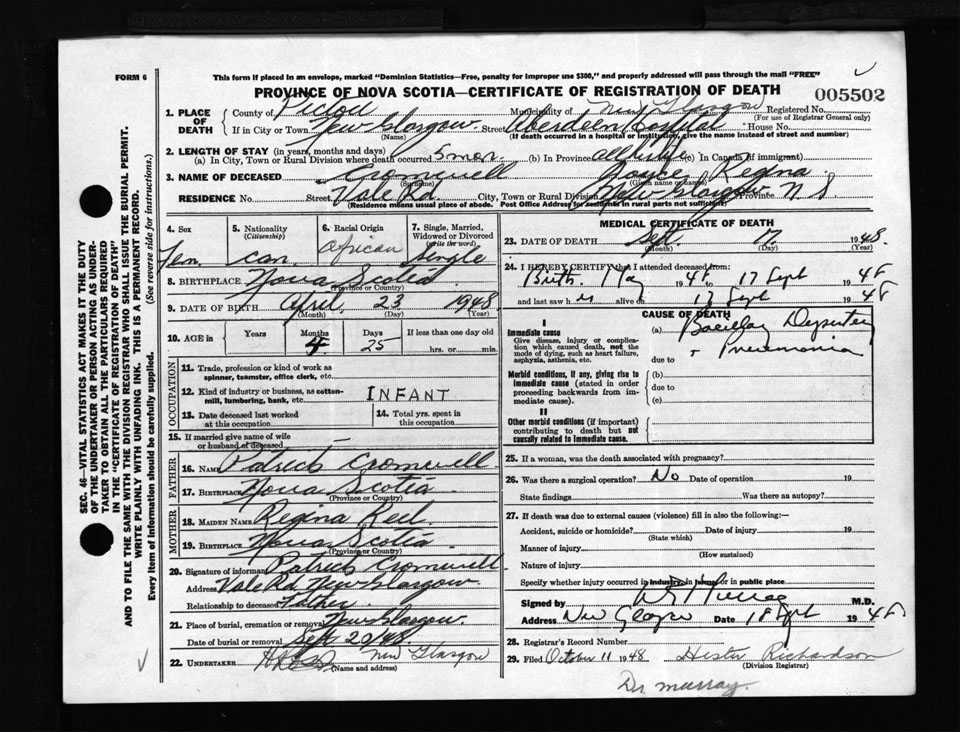 FORM 6
This form if placed in an envelope, marked "Dominion Statistics—Free, penalty for improper use $300," and properly addressed will pass through the mail "FREE"
PROVINCE OF NOVA SCOTIA—CERTIFICATE OF REGISTRATION OF DEATH
005502
1. PLACE OF DEATH County of Pictou Municipality of New Glasgow Registered No.
(For use of Registrar General only)
If in City or Town New Glasgow Street Aberdeen Hospital House No.
(Name) (If death occurred in a hospital or institution, give the name instead of street and number)
2. LENGTH OF STAY (in years, months and days)
(a) In City, Town or Rural Division where death occurred 5 mon. (b) In Province all life (c) In Canada (if immigrant)
3. NAME OF DECEASED Cromwell Joyce Regina
(Surname) (Given name or names)
RESIDENCE No. Street Vale Rd. City, Town or Rural Division New Glasgow Province N.S.
(Residence means usual place of abode. Post Office Address for residents in rural parts not sufficient)
4. Sex Fem.
5. Nationality (Citizenship) Can.
6. Racial Origin African
7. Single, Married, Widowed or Divorced (write the word) Single
8. BIRTHPLACE Nova Scotia
(Province or Country)
9. DATE OF BIRTH April 23 1948
(Month) (Day) (Year)
10. AGE in Years Months 4 Days 25 If less than one day old hrs. or min.
OCCUPATION
11. Trade, profession or kind of work as spinner, teamster, office clerk, etc.
12. Kind of industry or business, as cotton-mill, lumbering, bank, etc. INFANT
13. Date deceased last worked at this occupation
14. Total yrs. spent in this occupation
15. If married give name of wife or husband of deceased
FATHER
16. NAME Patrick Cromwell
17. BIRTHPLACE Nova Scotia
(Province or Country)
MOTHER
18. MAIDEN NAME Regina
19. BIRTHPLACE Nova Scotia
(Province or Country)
20. Signature of informant Patrick Cromwell
Address Vale Rd. New Glasgow
Relationship to deceased Father
21. Place of burial, cremation or removal New Glasgow
Date of burial or removal Sept 20/48
22. UNDERTAKER New Glasgow
(Name and address)
MEDICAL CERTIFICATE OF DEATH
23. DATE OF DEATH Sept. 17 1948
(Month) (Day) (Year)
24. I HEREBY CERTIFY that I attended deceased from:
Birth. May 1948 to 17 Sept 1948
and last saw her alive on 17 Sept 1948
CAUSE OF DEATH
I
Immediate cause
Give disease, injury or complication which caused death, not the mode of dying, such as heart failure, asphyxia, asthenia, etc.
(a) Bacillary Dysentery
+ Pneumonia
due to
Morbid conditions, if any, giving rise to immediate cause (stated in order proceeding backwards from immediate cause).
(b)
due to
(c)
II
Other morbid conditions (if important) contributing to death but not causally related to immediate cause.
25. If a woman, was the death associated with pregnancy?
26. Was there a surgical operation? No Date of operation 19
State findings Was there an autopsy?
27. If death was due to external causes (violence) fill in also the following:—
Accident, suicide or homicide? Date of injury 19
(State which)
Manner of injury
(How sustained)
Nature of injury
Specify whether injury occurred in industry, in home or in public place
Signed by Murray M.D.
Address New Glasgow Date 18 Sept 1948
28. Registrar's Record Number
29. Filed October 11 1948 Hester Richardson
(Division Registrar)
Dr. Murray.
SEC. 46—VITAL STATISTICS ACT MAKES IT THE DUTY OF THE UNDERTAKER OR PERSON ACTING AS UNDERTAKER TO OBTAIN ALL THE PARTICULARS REQUIRED IN THE "CERTIFICATE OF REGISTRATION OF DEATH" AND TO FILE THE SAME WITH THE DIVISION REGISTRAR WHO SHALL ISSUE THE BURIAL PERMIT.
WRITE PLAINLY WITH UNFADING INK. THIS IS A PERMANENT RECORD.
Every item of information should be carefully supplied. (See reverse side for instructions.)